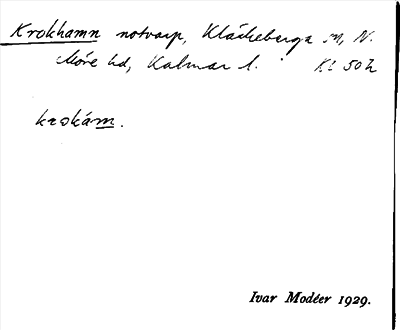 Krokhamn notvarp, Kläckeberga sn, N.
Möre hd, Kalmar l. Kl 50 h
krokám.
Ivar Modéer 1929.